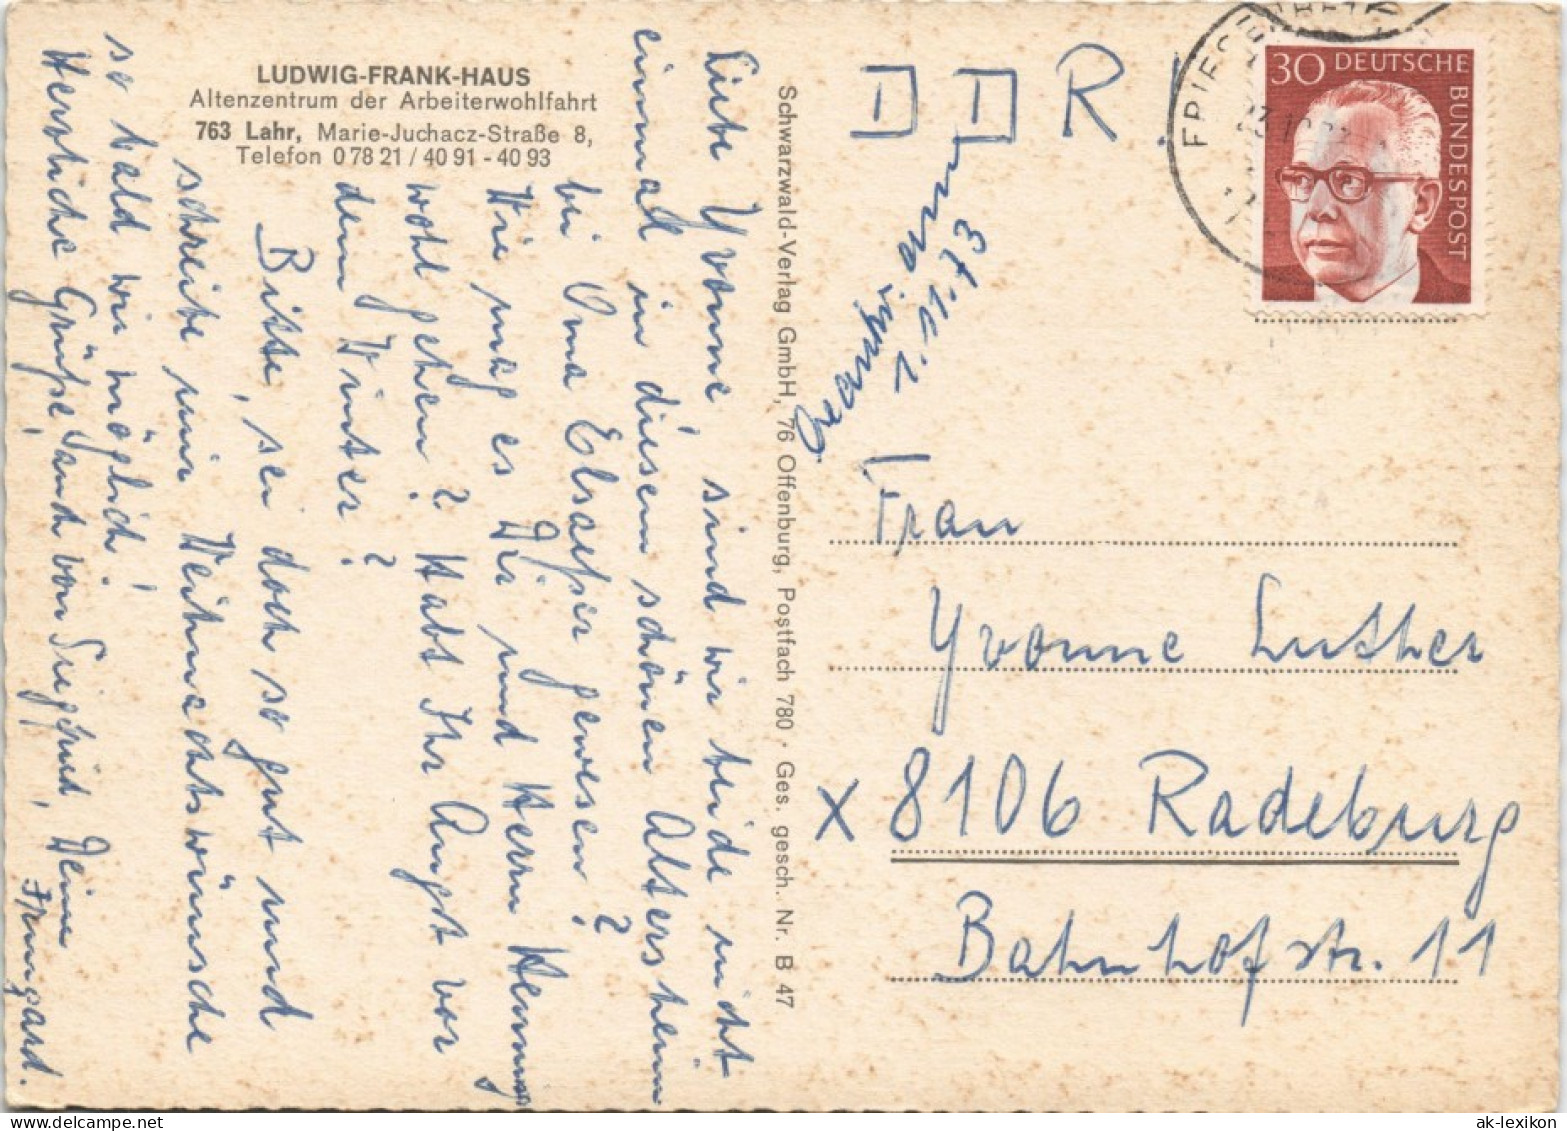 LUDWIG-FRANK-HAUS
Altenzentrum der Arbeiterwohlfahrt
763 Lahr, Marie-Juchacz-Straße 8,
Telefon 0 78 21 / 40 91 - 40 93
Liebe Yvonne, sind wir beide nicht
einmal in diesem schönen Altersheim
bei Oma Elsaeßer gewesen?
Wie mag es Dir und Herrn Hennig
wohl gehen? Habt Ihr Angst vor
dem Winter?
Bitte, sei doch so gut und
schreibe mir Weihnachtswünsche
so bald wie möglich!
Herzliche Grüße, auch von Siegfried, Deine
Irmgard.
Schwarzwald-Verlag GmbH, 76 Offenburg, Postfach 780 · Ges. gesch. Nr. B 47
DDR!
beantw. am
1.11.73
FRIESENHEIM
30 DEUTSCHE
BUNDESPOST
Frau
Yvonne Luther
x 8106 Radeburg
Bahnhofstr. 11
ak-lexikon